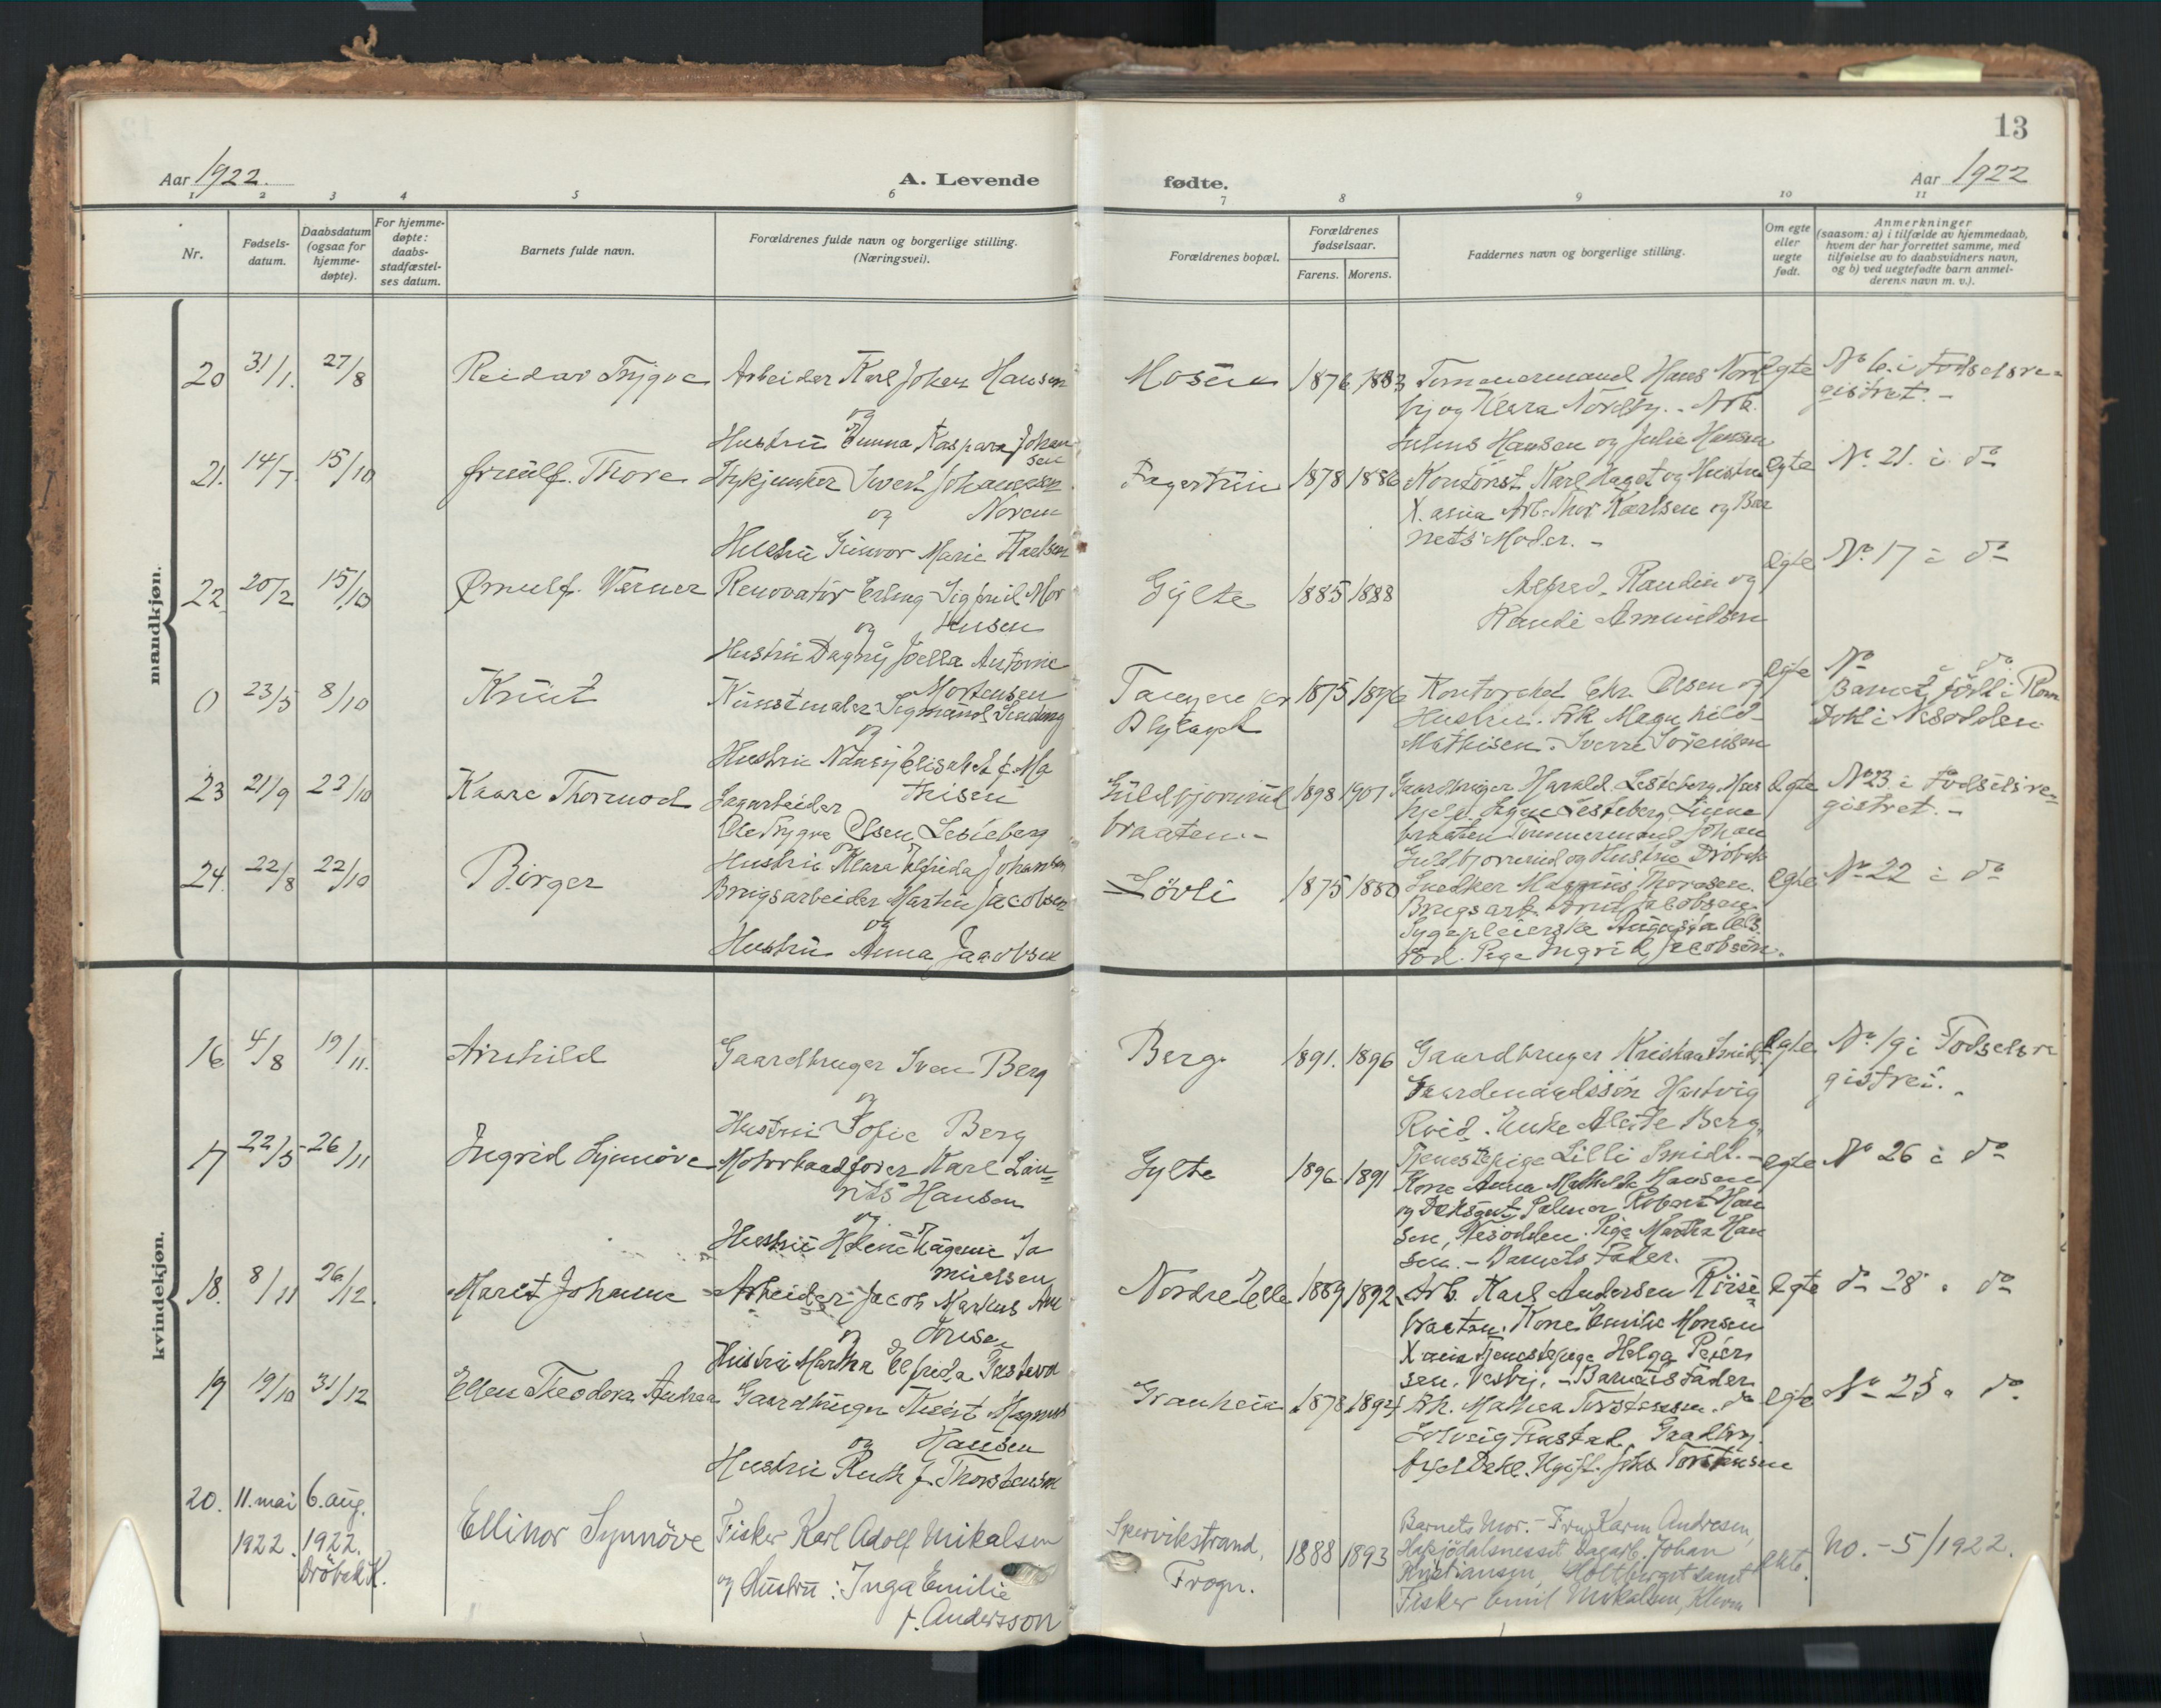 13
Aar 1922.
A. Levende
fødte.
Aar 1922
1 2 3 4 5 6 7 8 9 10 11
Nr.
Fødsels-
datum.
Daabsdatum
(ogsaa for
hjemme-
døpte).
For hjemme-
døpte:
daabs-
stadfæstel-
ses datum.
Barnets fulde navn.
Forældrenes fulde navn og borgerlige stilling.
(Næringsvei).
Forældrenes bopæl.
Forældrenes
fødselsaar.
Farens. Morens.
Faddernes navn og borgerlige stilling.
Om egte
eller
uegte
født.
Anmerkninger
(saasom: a) i tilfælde av hjemmedaab,
hvem der har forrettet samme, med
tilføielse av to daabsvidners navn,
og b) ved uegtefødte barn anmel-
derens navn m. v.).
mandkjøn.
20 31/1. 27/8 Reidar Trygve
Arbeider Karl Johan Hansen
og
Hustru Emma Kaspara Johan
sen
Mosen 1876 1883
Tømmermand Hans Nord
by og Klara Nordby. - Arb.
Julius Hansen og Julie Hansen
Egte
No 6. i Fødselsre-
gistret. -
21. 14/7. 15/10 Arnulf. Thore
Johannessen
og Noren
Hustru Gunvor Marie Karlsen
Fagertun 1878 1886
Kontorist Karl Haget og Hustru
X.ania Arb. Thor Karlsen og Bar
nets Moder. -
egte
No. 21. i do
22. 20/2 15/10 Ørnulf. Werner
Renovatør Erling Sigfrid Mor
og tensen
Hustru Dagny Joella Antonie
Mortensen
Gylte 1885 1888
Alfred. Randin og
Randi Amundsen
egte
No. 17 i do
0 23/5 8/10 Knut
Kunstmaler Sigmund Sinding
og
Hustru Nancy Elisabet f. Ma
thisen
Tangen pr
1875 1896
Kontorchef Chr. Olsen og
Hustru. Frk. Magnhild
Mathisen. Sverre Sørensen
egte
No do
Barnet født i Rom
Døbt i Nesodden.
23 21/9 22/10 Kaare Thormod
Sagarbeider
Ole Trygve Olsen Lesteberg
og
Hustru Klara Elfrida Johansen
Guldbjørnrud
braaten. - 1898 1901
Gaardbruger Harald Lesteberg Hus
Signe Lesteberg Linne
braaten Tømmermand Johan
Guldbjørnrud og Hustru Drøbak
Egte
No 23 i Fødselsre-
gistret. -
24. 22/8 22/10 Birger
Brugsarbeider Martin Jacobsen
og
Hustru Anna Jacobsen
Løvli 1875 1880
Snedker Magnus Thoresen.
Brugsarb. Jacobsen.
Sygepleierske Augusta Ols
Pige Ingrid Jacobsen.
egte
No 22 i do
kvindekjøn.
16 4/8 19/11. Arnhild
Gaardbruger Sven Berg
og
Hustru Sofie Berg
Berg. 1891. 1896
Gaardbruger Kristian Smidt
Gaardmandssøn Hartvig
Røid. Enke Alette Berg.
Tjenestepige Lilli Smidt. -
Egte
No 19 i Fødselsre
gistret. -
17 22/5 - 26/11 Ingrid Synnøve
Motorbaadfører Karl Lau-
rits Hansen
og
Hustru Helene Dagmar Sa
muelsen
Gylte 1896 1891
Kone Anna Mathilde Hansen
og Dæksgut Palmer Robert Han
sen, Nesodden. Pige Martha Han
sen. - Barnets Fader.
egte
No 26 i do
18. 8/11 26/12. Marit Johanne
Arbeider Jacob Markus An
og tonsen
Hustru Martha Elfrida Gustava
Nordre Elle 1889 1892
Arb. Karl Andersen Riise-
braaten. Kone Emilie Monsen
X.ania Tjenestepige Helga Peder
sen. Vestby. - Barnets Fader
Egte
do 28 " do
19 19/10 31/12 Ellen Theodora Andrea
Gaardbruger Knut Magnus
og Hansen
Hustru Ruth f. Thorstensen
Granheim 1878 1894
Frk. Mathea Torstensen. do
Solveig Gaardbr.
Ugift. Johs Torstensen
egte
No 25 " do
20. 11. mai 6. aug.
1922. 1922.
Drøbak K.
Ellinor Synnöve
Fisker Karl Adolf Mikalsen
og Hustru: Inga Emilie
f. Andersson
Spervikstrand,
Frogn.
1888 1893
Barnets Mor. - Fru Karin Andresen,
Dagarb. Johan
Kristiansen, Holtberget samt
Fisker Emil Mikalsen,
ekte.
No. - 5/1922.